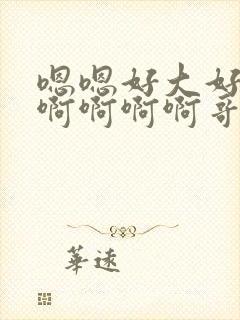 嗯嗯好大好
啊啊啊啊哥
華遠